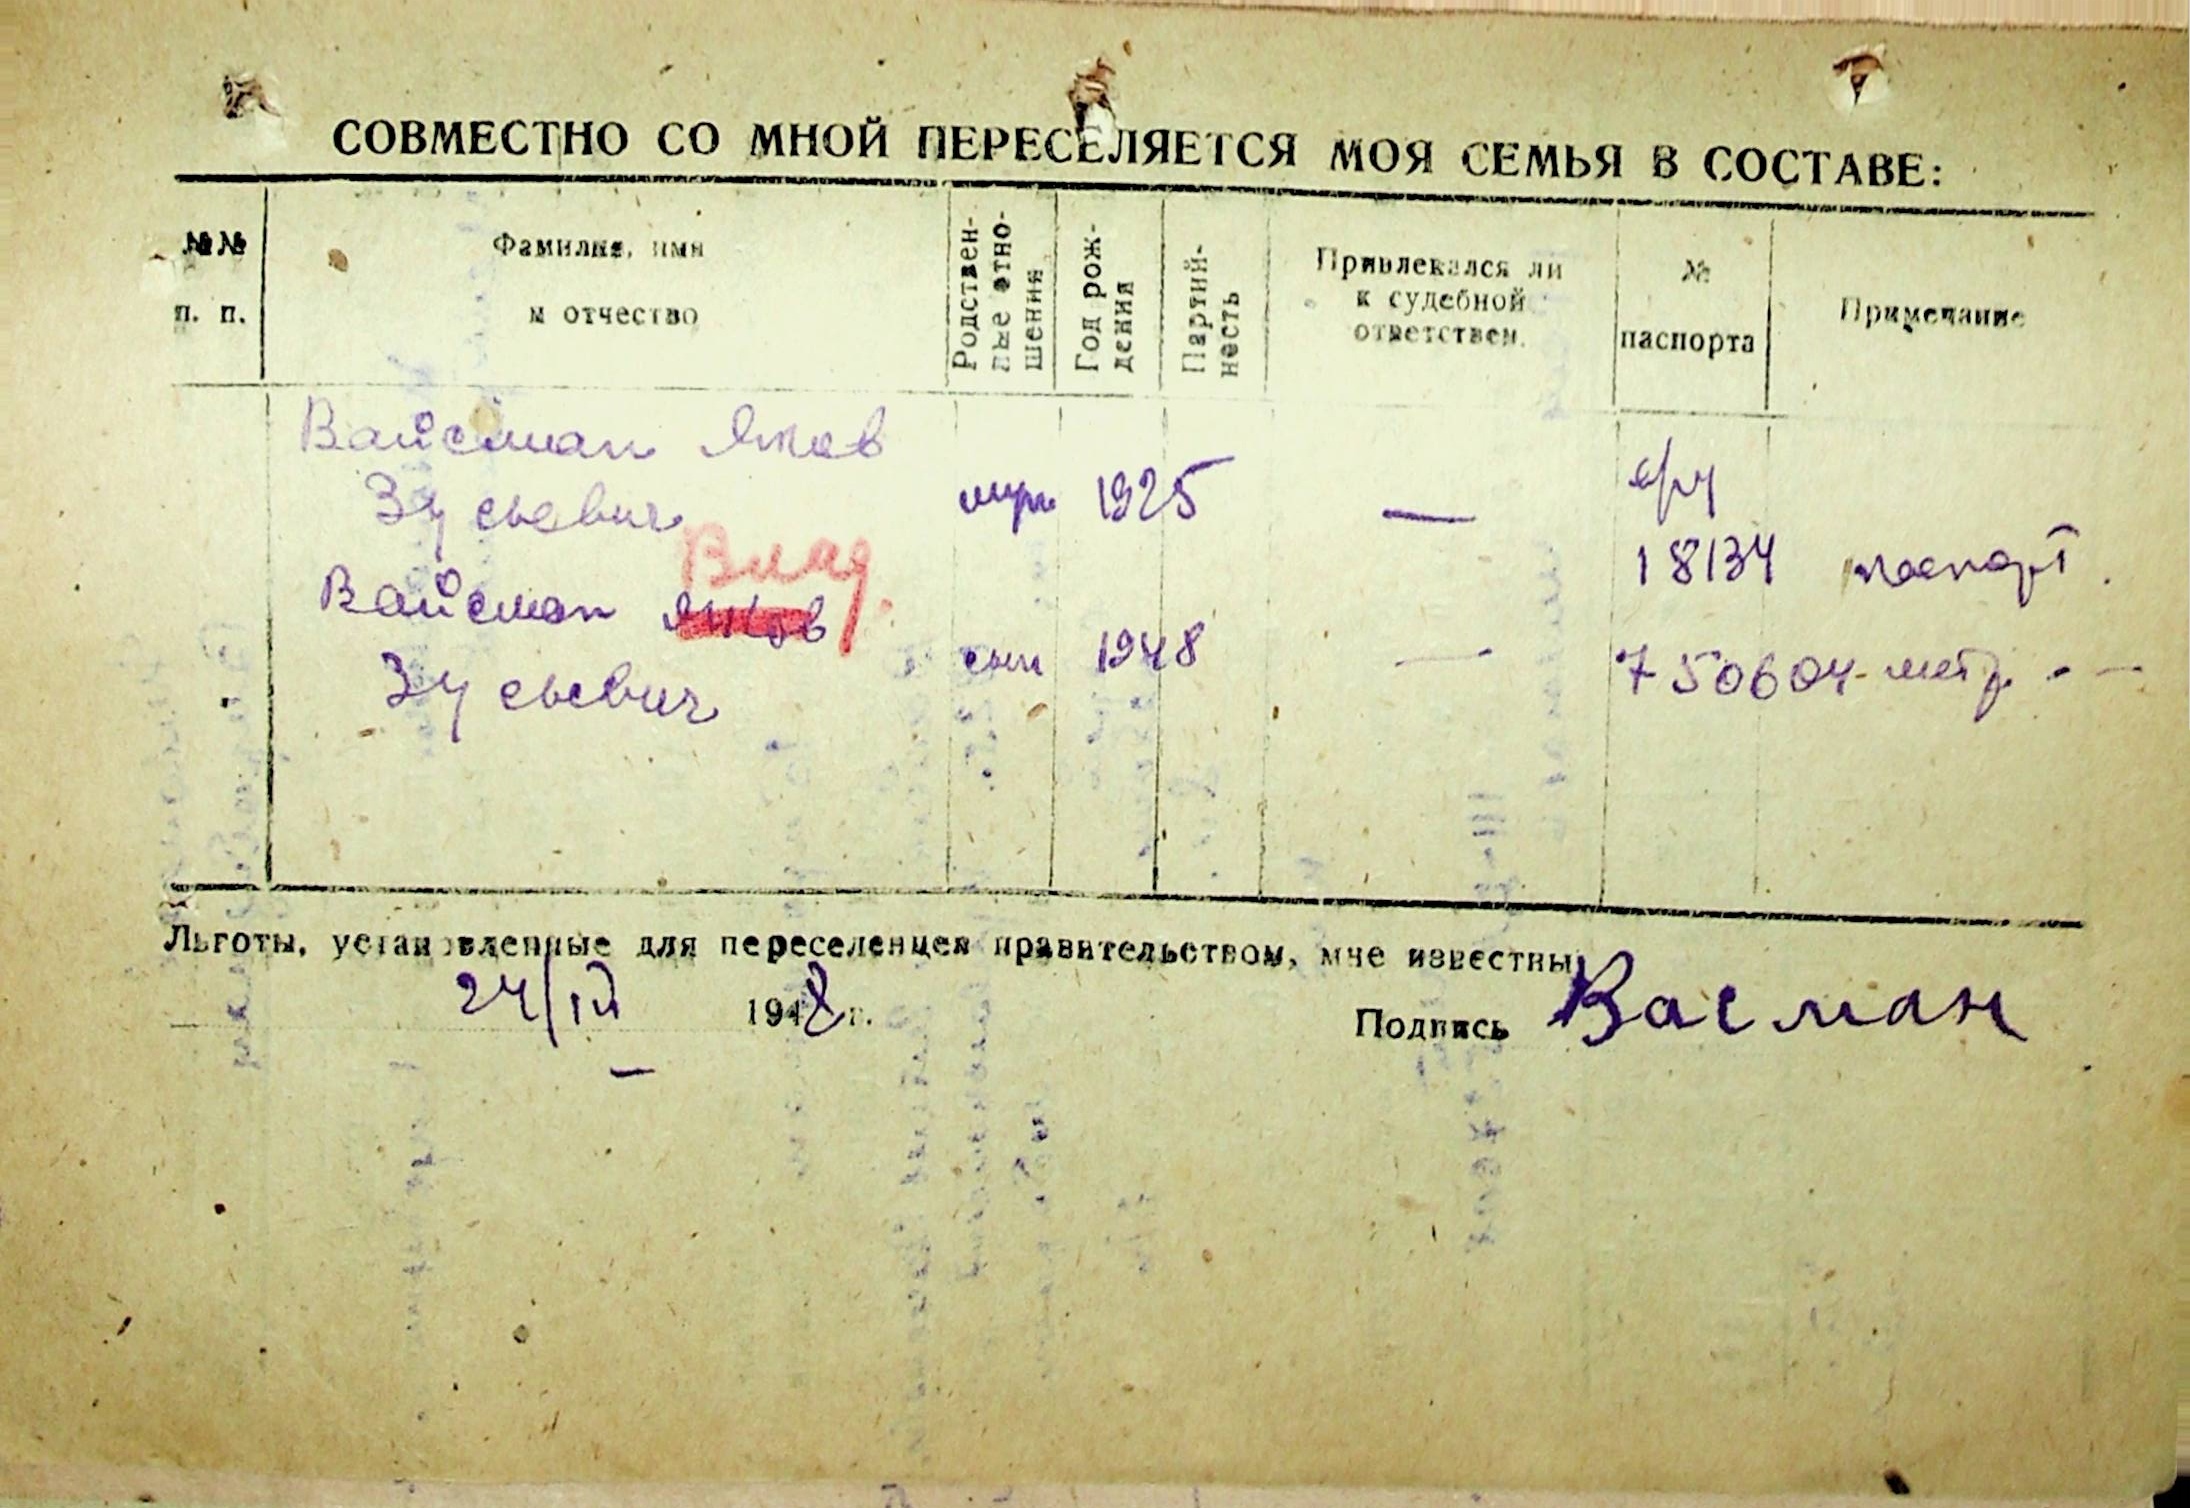 СОВМЕСТНО СО МНОЙ ПЕРЕСЕЛЯЕТСЯ МОЯ СЕМЬЯ В СОСТАВЕ:
№№ п. п.
Фамилия, имя и отчество
Родствен-
ные отно-
шения
Год рож-
дения
Партий-
несть
Привлекался ли
к судебной
ответствен.
№
паспорта
Примечание
Вайсман Яков
Зусьевич муж 1925 —
18134 паспорт.
Влад.
Вайсман Яков
Зусьевич сын 1948 — 750604 - метр. —
Льготы, установленные для переселенцев правительством, мне известны
24/IV 1948 г.
Подпись Васман